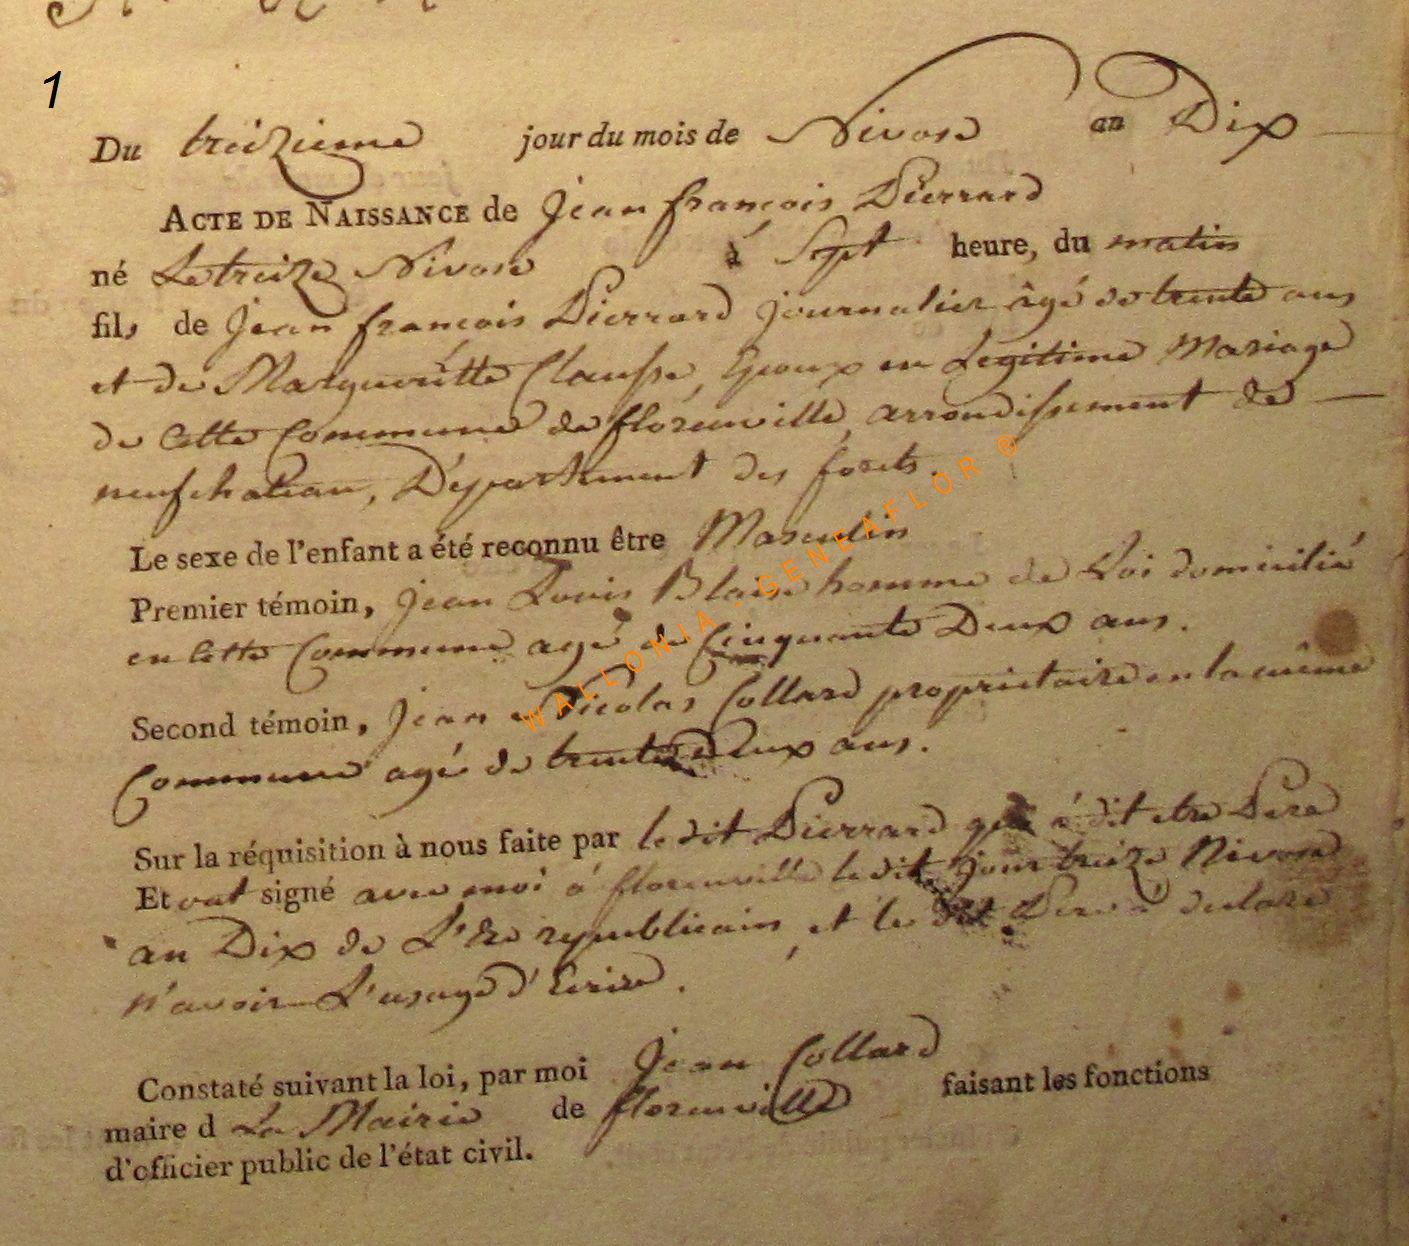 1
Du treizieme jour du mois de Nivose an Dix
ACTE DE NAISSANCE de Jean françois Pierrard
né Le treize Nivose à Sept heure, du matin
fils de Jean françois Pierrard journalier âgé de trente ans
et de Margueritte Clausse, Epoux en Legitime Mariage
de Cette Commune de florenville, arrondissement de
neufchateau, Département des forets.
Le sexe de l'enfant a été reconnu être Masculin
Premier témoin, Jean Louis Blaise homme de Loi domicilié
en Cette Commune agé de Cinquante Deux ans.
WALLONIA - GENEAFLOR ®
Second témoin, Jean Nicolas Collard proprietaire en la même
Commune agé de trente Deux ans.
Sur la réquisition à nous faite par le dit Pierrard qui à dit etre Pere
Et ont signé avec moi à florenville le dit jour treize Nivose
an Dix de L'Ere republicain, et le dit Pere à declaré
n'avoir L'usage d'Ecrire.
Constaté suivant la loi, par moi Jean Collard
maire d La Mairie de florenville faisant les fonctions
d'officier public de l'état civil.